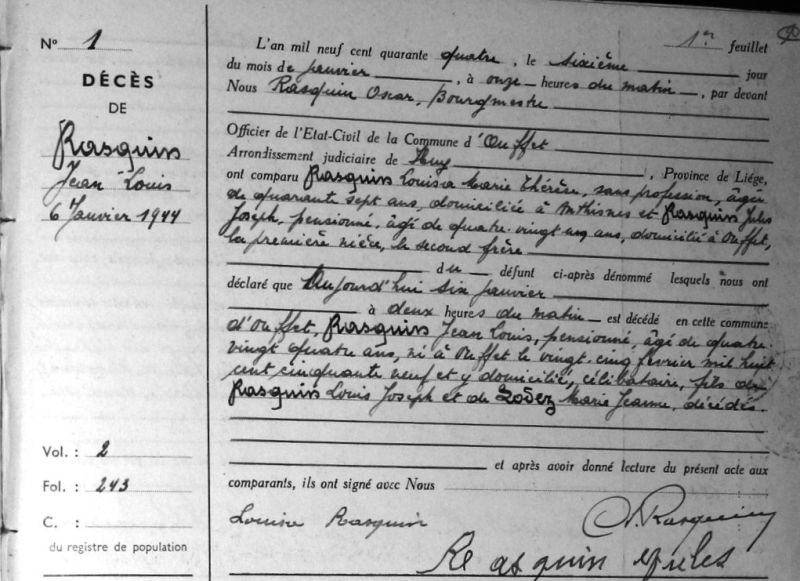 N° 1
DÉCÈS
DE
Rasquin
Jean Louis
6 Janvier 1944
Vol. : 2
Fol. : 243
C. :
du registre de population
1er feuillet
L'an mil neuf cent quarante quatre, le sixième jour
du mois de janvier, à onze heures du matin, par devant
Nous Rasquin Oscar, Bourgmestre
Officier de l'Etat-Civil de la Commune d'Ouffet
Arrondissement judiciaire de Huy, Province de Liége,
ont comparu Rasquin Louisa Marie Thérèse, sans profession, âgée
de quarante sept ans, domiciliée à Anthisnes et Rasquin Jules
Joseph, pensionné, âgé de quatre-vingt un ans, domicilié à Ouffet,
la première nièce, le second frère
du défunt ci-après dénommé lesquels nous ont
déclaré que Aujourd'hui six janvier
à deux heures du matin est décédé en cette commune
d'Ouffet, Rasquin Jean Louis, pensionné, âgé de quatre-
vingt quatre ans, né à Ouffet le vingt-cinq février mil huit
cent cinquante neuf et y domicilié, célibataire, fils de
Rasquin Louis Joseph et de Marie Jeanne, décédés.
et après avoir donné lecture du présent acte aux
comparants, ils ont signé avec Nous
Louisa Rasquin
O. Rasquin
Rasquin Jules